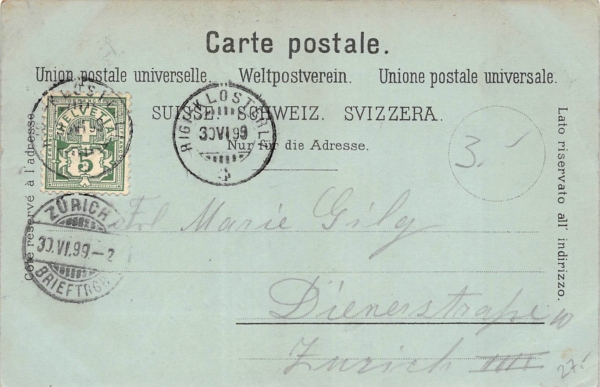 Carte postale.
Union postale universelle. Weltpostverein. Unione postale universale.
SUISSE. SCHWEIZ. SVIZZERA.
Nur für die Adresse.
Côté réservé à l'adresse.
Lato riservato all' indirizzo.
HELVETIA
5
RIGI-KLÖSTERLI
30 VI 99
ZÜRICH
30.VI.99-2
BRIEFTRG
3.-
Frl Marie Gilg
Dienerstraße 10
Zurich IIII
27.-